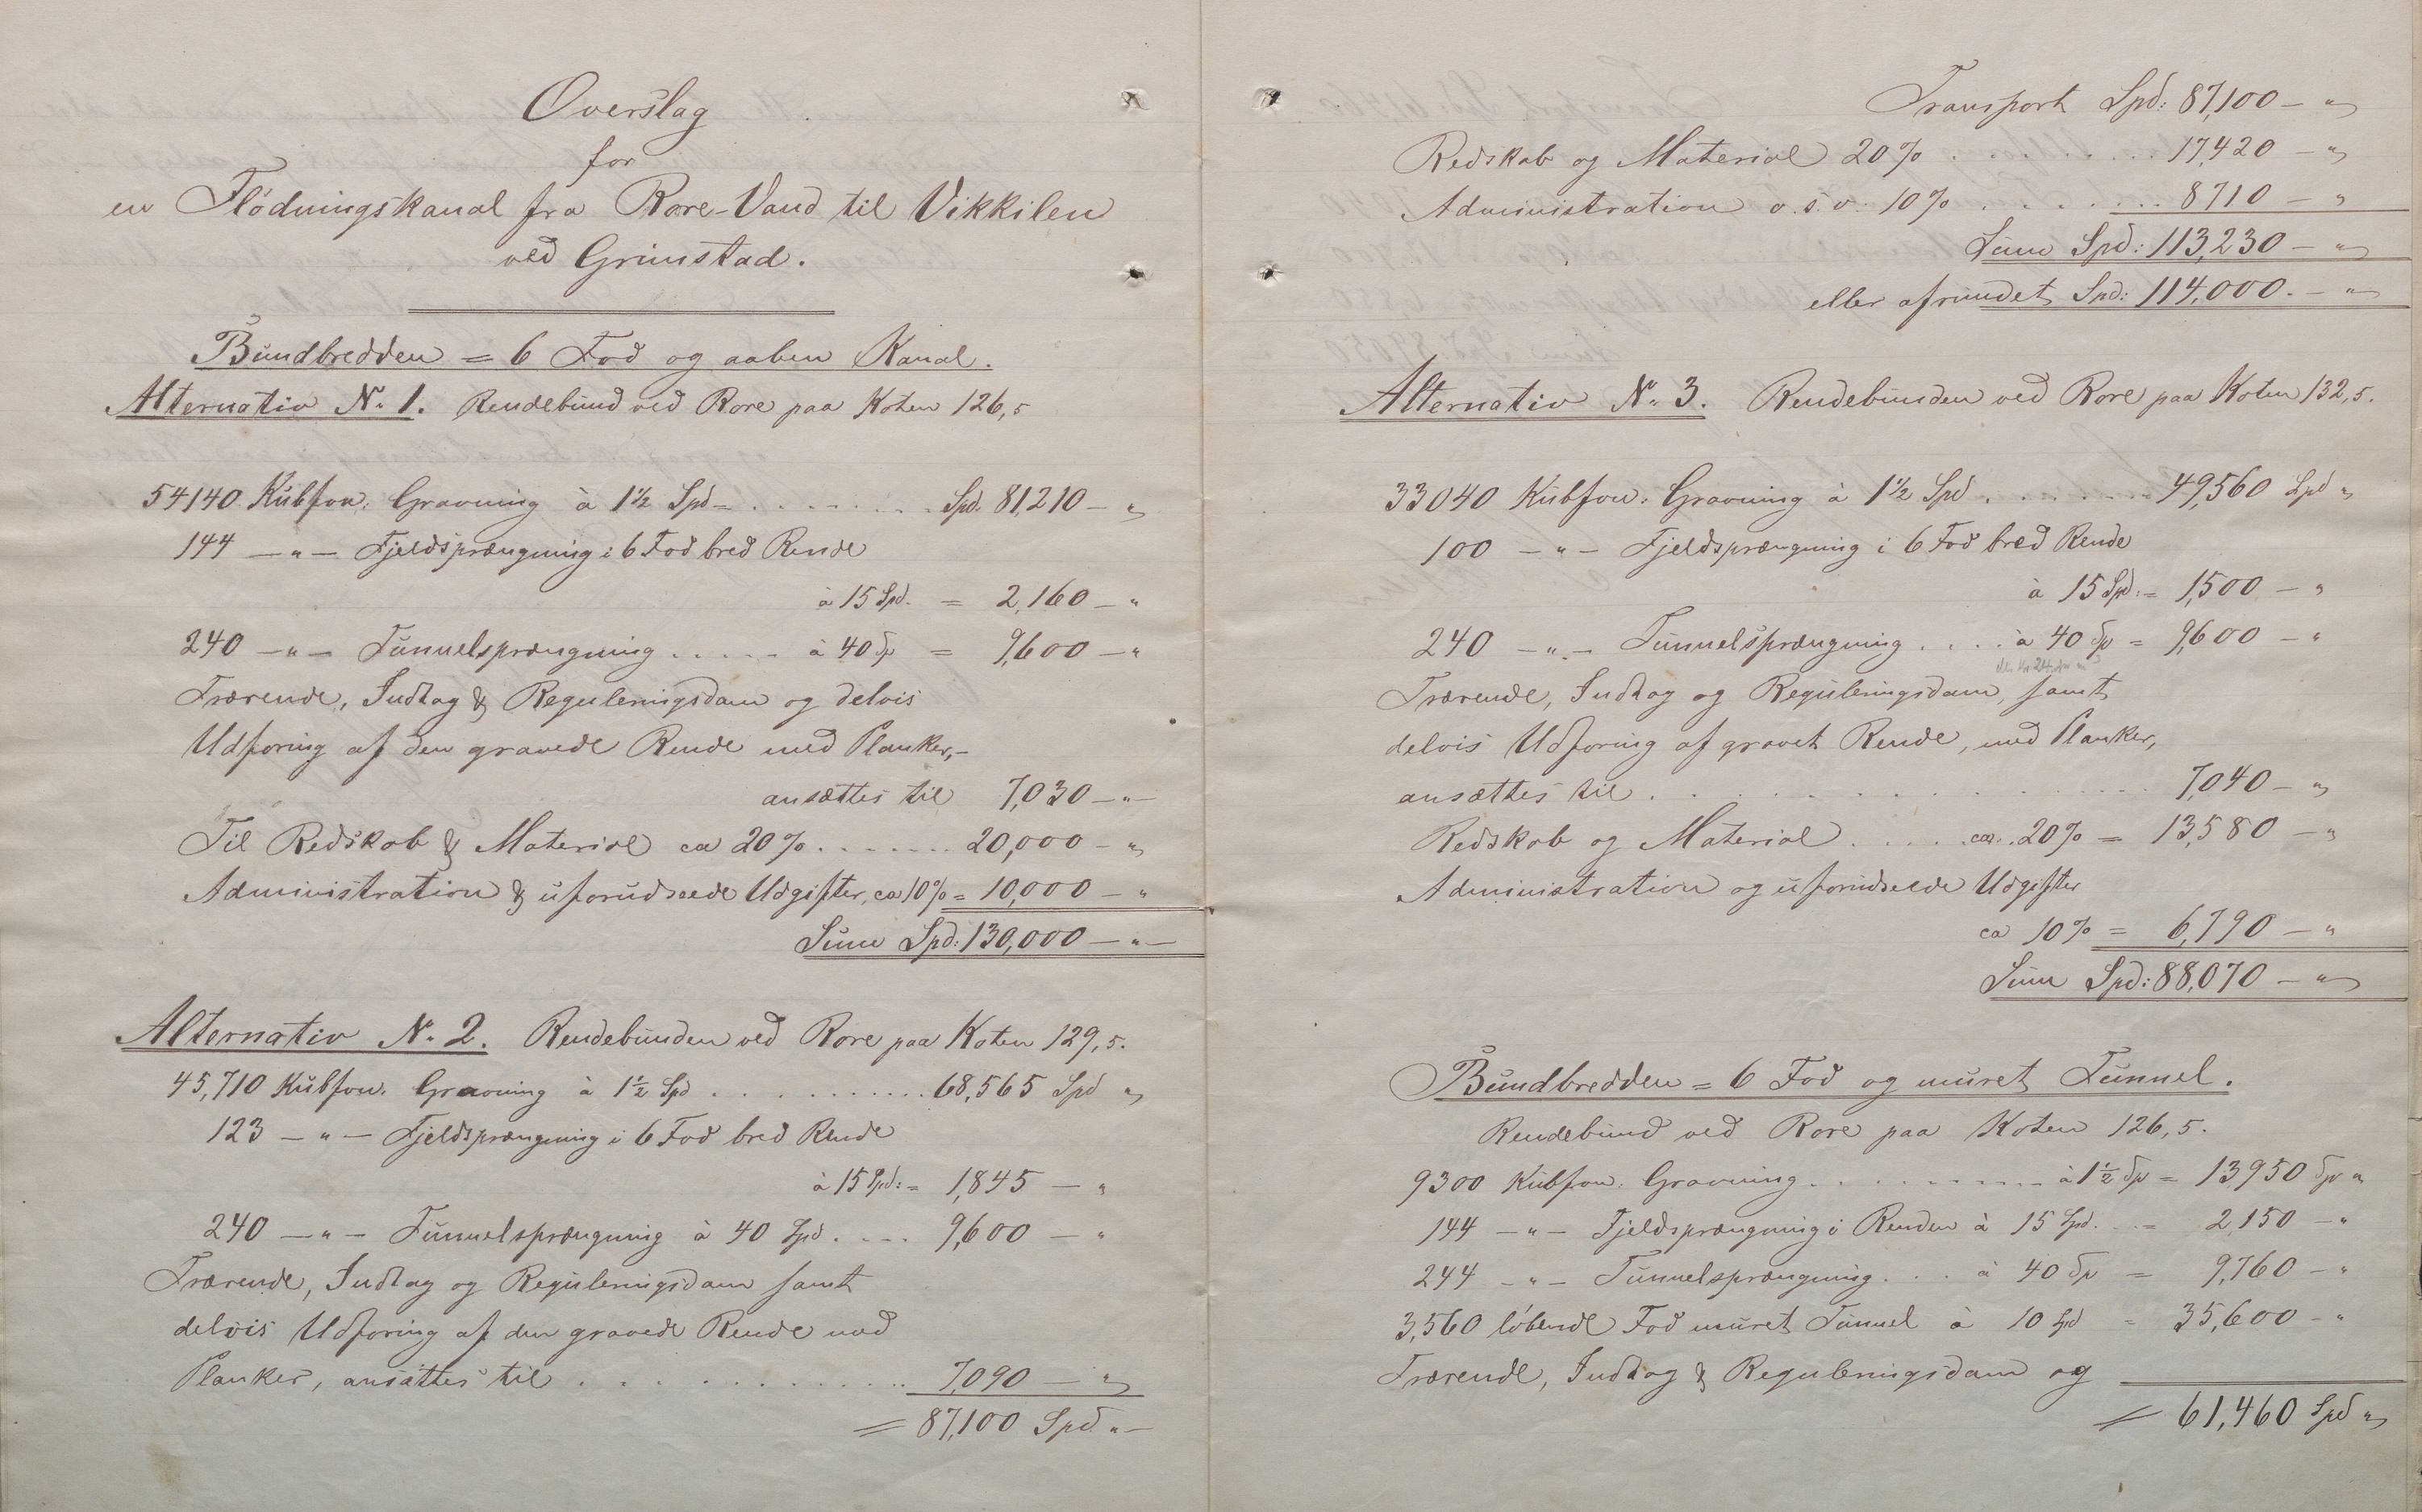 Overslag
for
en Flödningskanal fra Rore-Vand til Vikkilen
ved Grimstad.
Bundbredden = 6 Fod og aaben Kanal.
Alternativ No. 1. Rendebund ved Rore paa Koten 126,5
54140 Kubfvn. Gravning à 1½ Spd = . . . . . . . Spd. 81,210 — "
144 — " — Fjeldsprængning i 6 Fod bred Rende
à 15 Spd. = 2,160 — "
240 — " — Tunnelsprængning . . . . . à 40 Sp = 9,600 — "
Trærende, Indtag & Reguleringsdam og delvis
Udforing af den gravede Rende med Planker, —
ansættes til 7,030 — " —
Til Redskab & Material ca 20% . . . . . . . 20,000 — "
Administration & uforudseede Udgifter, ca 10% = 10,000 — "
Sum Spd: 130,000 — " —
Alternativ No. 2. Rendebunden ved Rore paa Koten 129,5.
45,710 Kubfvn. Gravning à 1½ Sp . . . . . . . . . . . 68,565 Spd "
123 — " — Fjeldsprængning i 6 Fod bred Rende
à 15 Spd: = 1,845 — "
240 — " — Tunnelsprængning à 40 Spd . . . . 9,600 — "
Trærende, Indtag og Reguleringsdam samt
delvis Udforing af den gravede Rende med
Planker, ansættes til . . . . . . . . . . . . 7,090 — "
= 87,100 Spd " —
Transport Spd: 87,100 — "
Redskab og Material 20% . . . . . . . . . 17,420 — "
Administration o.s.v. 10% . . . . . . . . 8710 — "
Sum Spd: 113,230 — "
eller afrundet Spd: 114,000. — "
Alternativ No. 3. Rendebunden ved Rore paa Koten 132,5.
33040 Kubfvn. Gravning à 1½ Spd . . . . . . . 49,560 Spd "
100 — " — Fjeldsprængning i 6 Fod bred Rende
à 15 Spd: = 1,500 — "
240 — " — Tunnelsprængning . . . . à 40 Sp = 9,600 — "
Trærende, Indtag og Reguleringsdam, samt
delvis Udforing af gravet Rende, med Planker,
ansættes til . . . . . . . . . . . . . . . . 7,040 — "
Redskab og Material . . . . . ca. 20% = 13,580 — "
Administration og uforudseede Udgifter
ca 10% = 6,790 — "
Sum Spd: 88,070 — "
Bundbredden = 6 Fod og muret Tunnel.
Rendebund ved Rore paa Koten 126,5.
9300 Kubfvn. Gravning . . . . . . . . . . à 1½ Sp = 13,950 Sp "
144 — " — Fjeldsprængning i Renden à 15 Spd. . . = 2,150 — "
244 — " — Tunnelsprængning . . . à 40 Sp = 9,760 — "
3,560 löbende Fod muret Tunnel à 10 Spd = 35,600 — "
Trærende, Indtag & Reguleringsdam og
= 61,460 Spd "